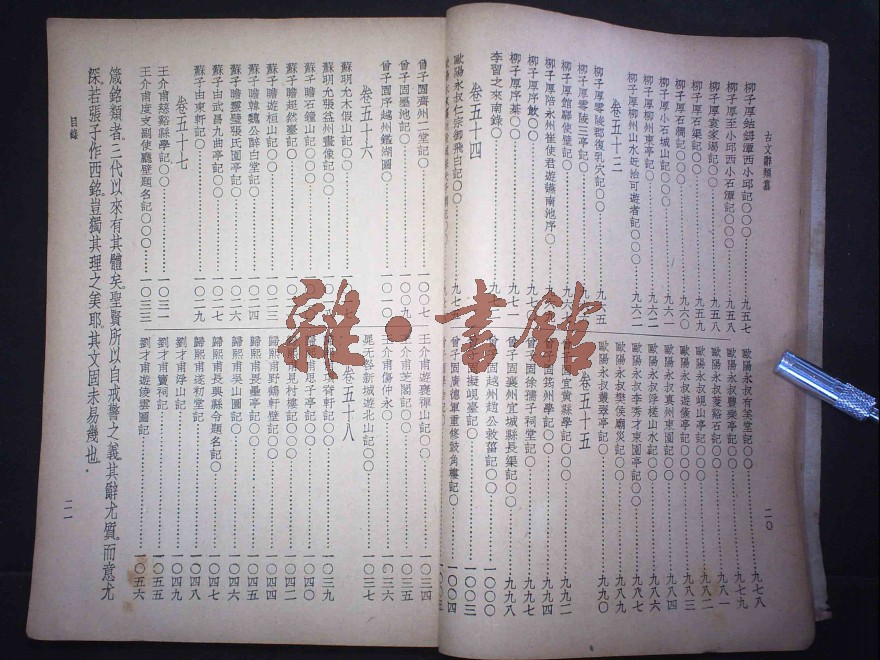 古文辭類纂
柳子厚鈷鉧潭西小邱記○○○九五七
柳子厚至小邱西小石潭記○○○九五八
柳子厚袁家渴記○○○九五八
柳子厚石渠記○○○九五九
柳子厚石澗記○○○九六○
柳子厚小石城山記○○○九六一
柳子厚柳州東亭記○○九六二
柳子厚柳州山水近治可遊者記○○○○九六二
卷五十三
柳子厚零陵郡復乳穴記○○九六五
柳子厚零陵三亭記○
柳子厚館驛使壁記○
柳子厚陪永州崔使君遊讌南池序○
柳子厚序飲○○九七○
柳子厚序棊○○九七一
李習之來南錄○
卷五十四
歐陽永叔仁宗御飛白記○○九七五
歐陽永叔有美堂記○○九七八
歐陽永叔豐樂亭記○○○九七九
歐陽永叔菱谿石記○○九八一
歐陽永叔峴山亭記○○○九八二
歐陽永叔遊鯈亭記○○九八三
歐陽永叔真州東園記○○九八四
歐陽永叔浮槎山水記○○九八六
歐陽永叔李秀才東園亭記○○九八七
歐陽永叔樊侯廟災記○○九八九
歐陽永叔叢翠亭記○○九九○
卷五十五
曾子固宜黃縣學記○○九九二
曾子固筠州學記○○九九四
曾子固徐孺子祠堂記○九九七
曾子固襄州宜城縣長渠記○○九九八
曾子固越州趙公救菑記○○一○○○
曾子固擬峴臺記○○一○○三
曾子固廣德軍重修鼓角樓記○○一○○四
二○
曾子固齊州二堂記○一○○七
曾子固墨池記○○一○○九
曾子固序越州鑑湖圖○
卷五十六
蘇明允木假山記○○
蘇明允張益州畫像記○○
蘇子瞻石鐘山記○○
蘇子瞻超然臺記○
蘇子瞻遊桓山記○○
蘇子瞻韓魏公醉白堂記○○一○二三
蘇子瞻靈壁張氏園亭記○○一○二六
蘇子由武昌九曲亭記○○一○二七
蘇子由東軒記○○一○二九
卷五十七
王介甫慈谿縣學記○○一○三一
王介甫度支副使廳壁題名記○○○一○三三
王介甫遊褒禪山記○○一○三四
王介甫芝閣記○○一○三五
王介甫傷仲永○一○三六
晁无咎新城遊北山記○○一○三七
卷五十八
歸熙甫項脊軒記○○一○三九
歸熙甫思子亭記○○一○四○
歸熙甫見村樓記○○一○四二
歸熙甫野鶴軒壁記○○一○四四
歸熙甫畏壘亭記○○一○四五
歸熙甫吳山圖記○○一○四六
歸熙甫長興縣令題名記○一○四七
歸熙甫遂初堂記一○四八
劉才甫浮山記一○四九
劉才甫竇祠記一○五五
劉才甫遊淩雲圖記一○五六
箴銘類者三代以來有其體矣聖賢所以自戒警之義其辭尤質而意尤
深若張子作西銘豈獨其理之美耶其文固未易幾也
目錄
二一
雜·書館